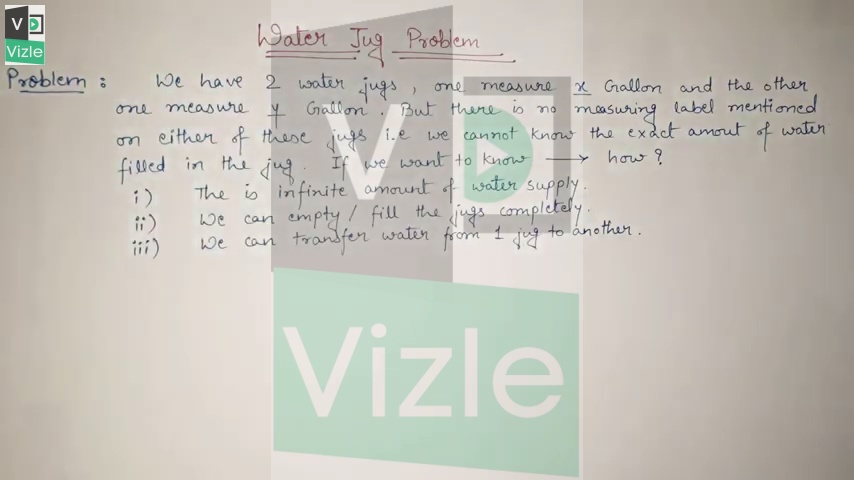 V D
Vizle
Water Jug Problem
Problem : We have 2 water jugs, one measure x Gallon and the other
one measure y Gallon. But there is no measuring label mentioned
on either of these jugs i.e we cannot know the exact amout of water
filled in the jug. If we want to know → how?
i) The is infinite amount of water supply.
ii) We can empty/ fill the jugs completely.
iii) We can transfer water from 1 jug to another.
V D
Vizle